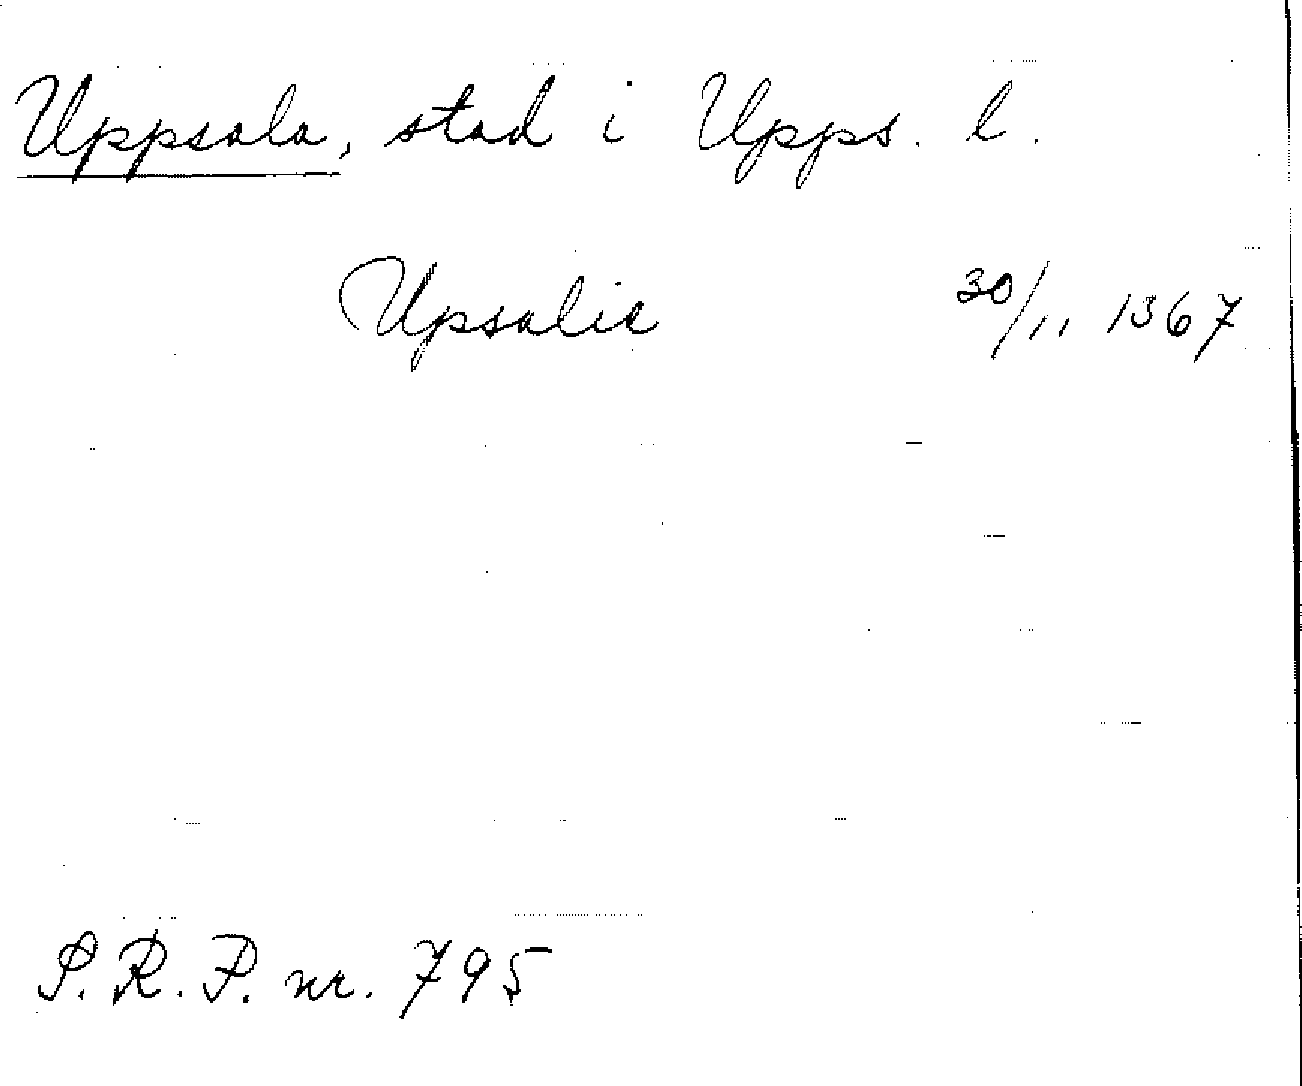 Uppsala, stad i Upps. l.
Upsalie 30/11 1367
S.R.P. nr. 795